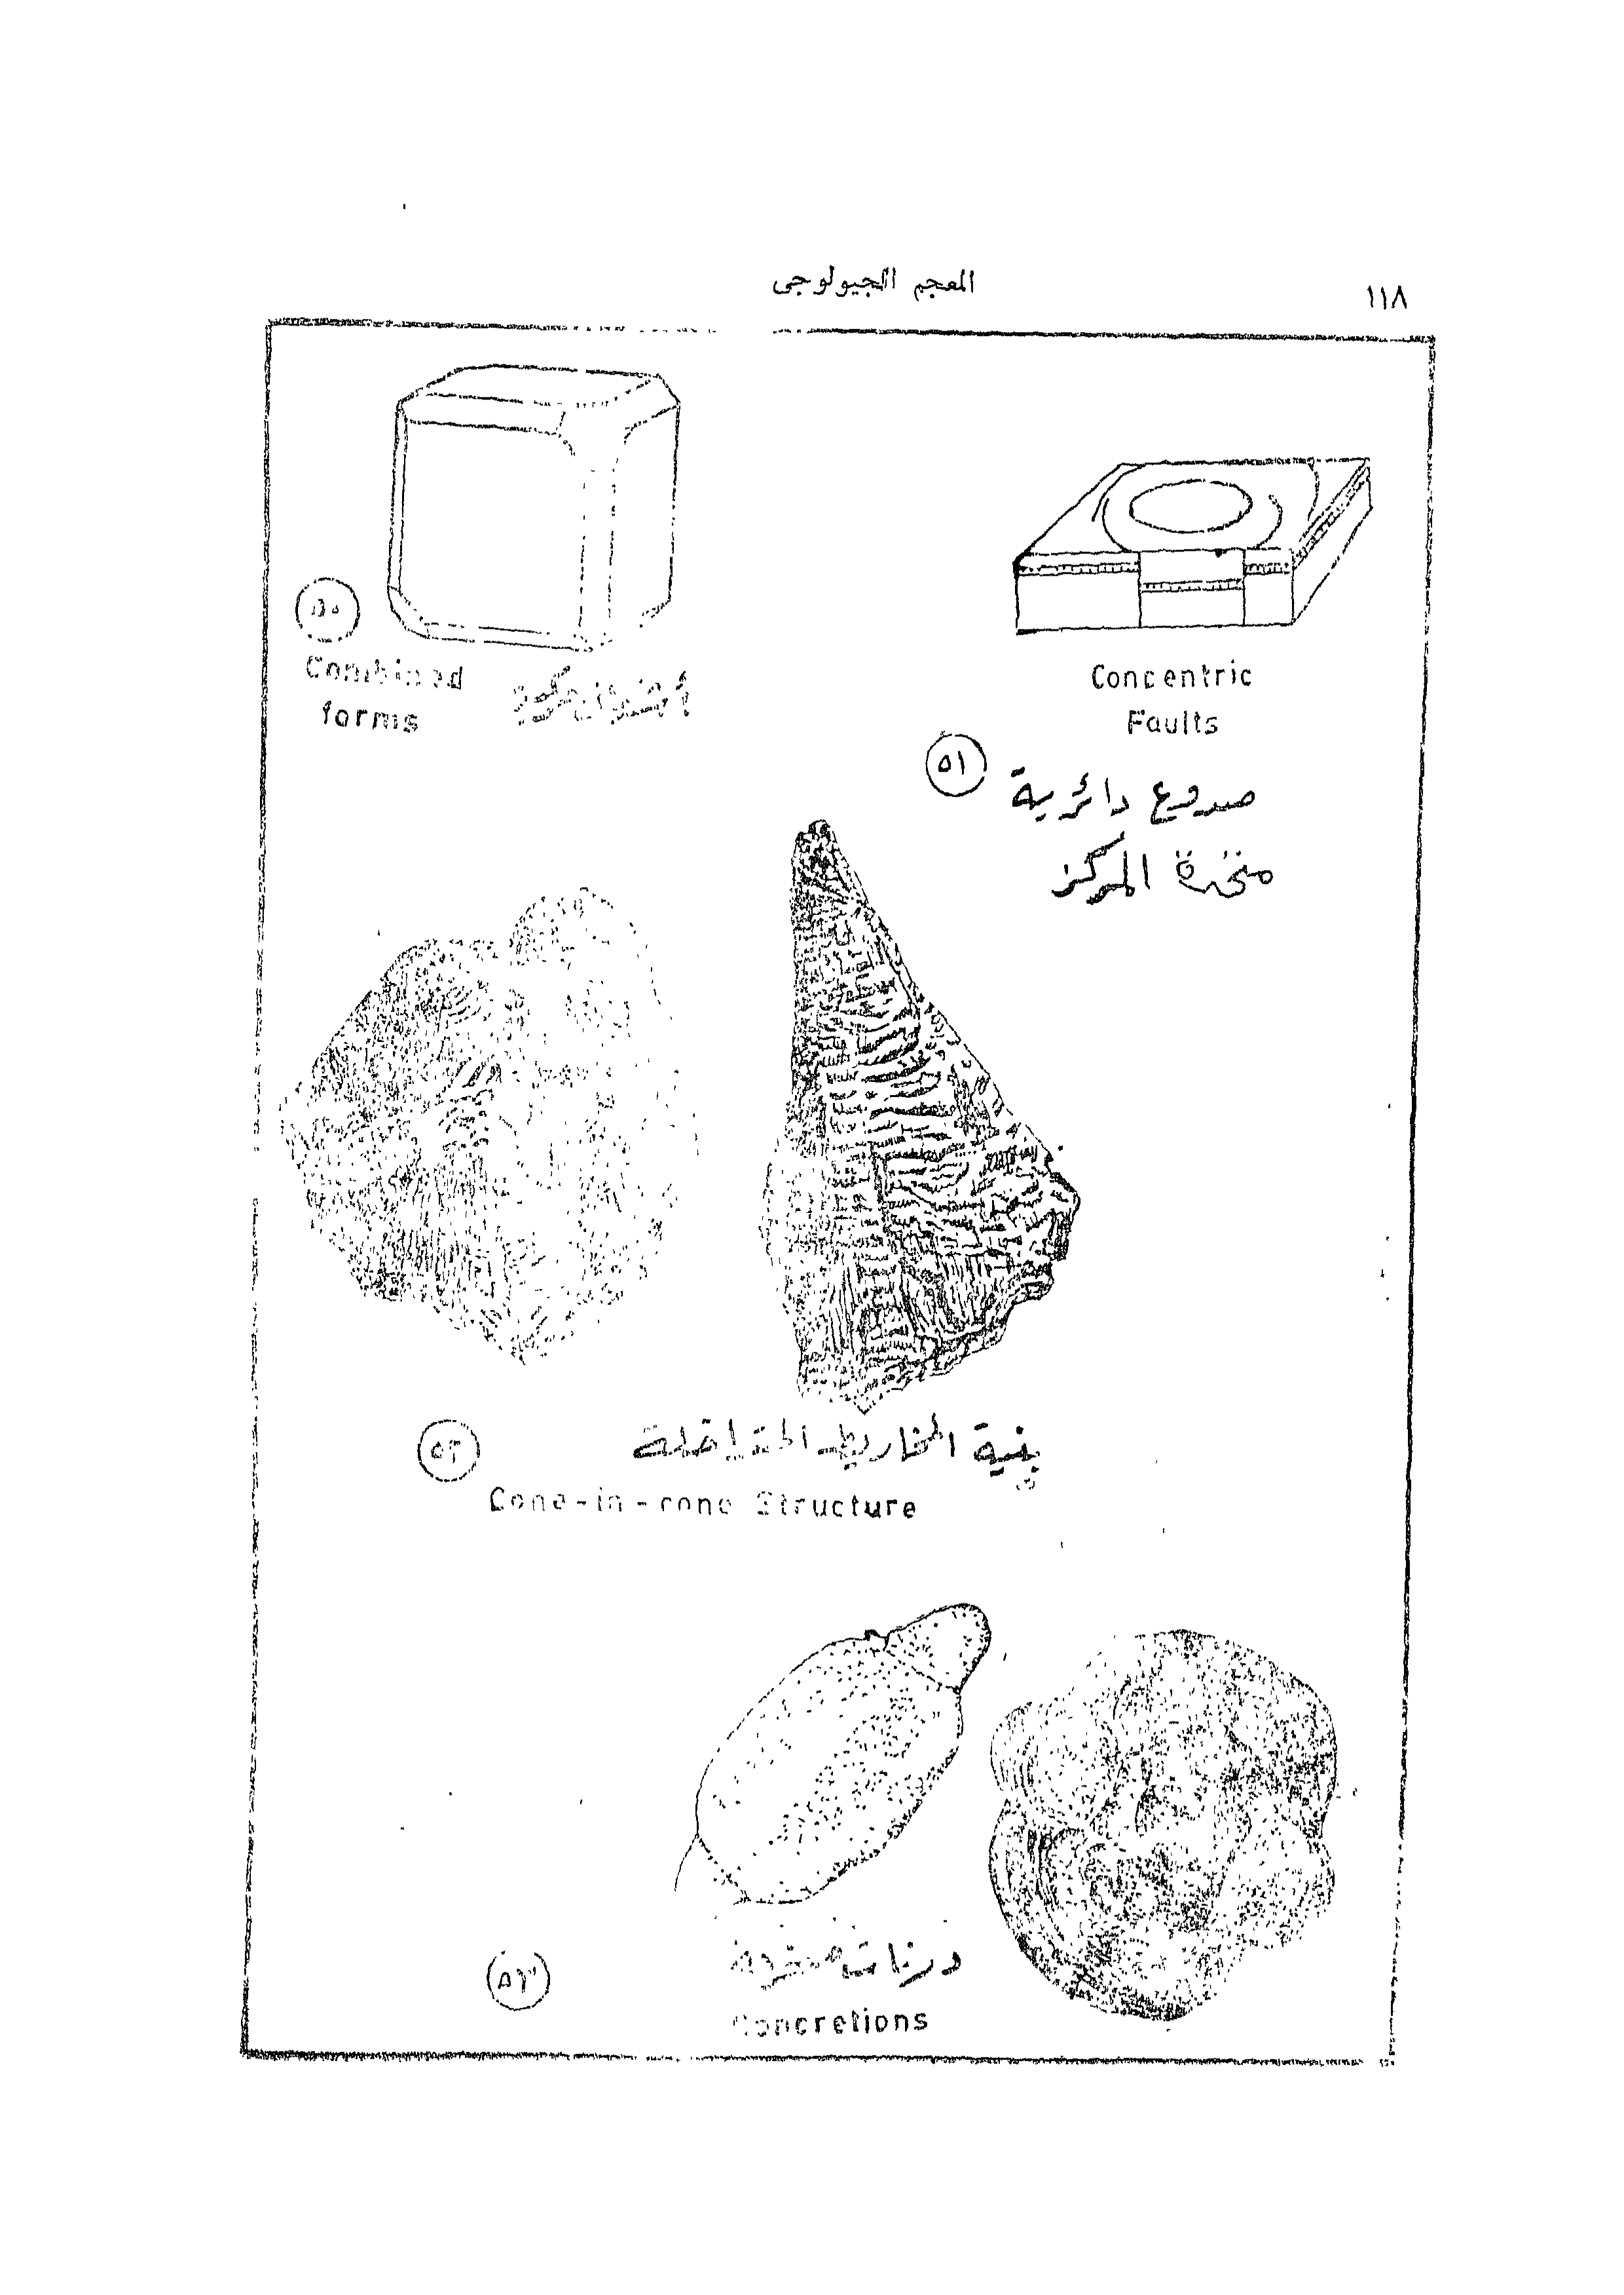 المعجم الجيولوجى
١١٨
٥٠
Combined
forms
Concentric
Faults
٥١
صدوع دائرية
متحدة المركز
بنية المخاريط المتداخلة
٥٢
Cone-in-cone Structure
درنات
٥٣
Concretions